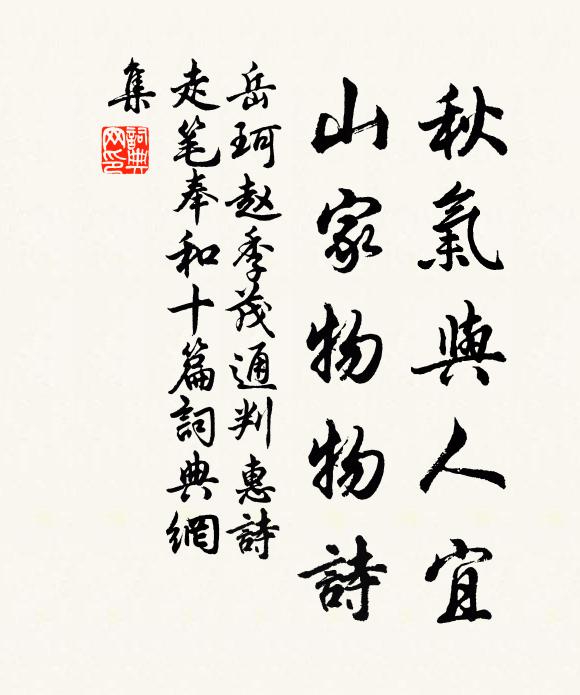 秋氣與人宜
山家物物詩
岳珂赵季茂通判惠詩
走笔奉和十篇詞典網
集
詞典網印